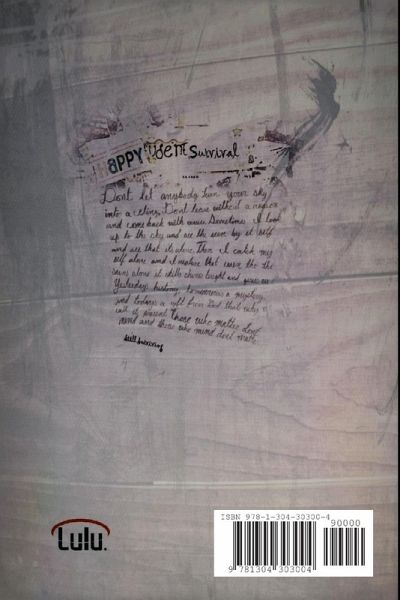 HAPPY Survival
Dont let anybody turn your sky
into a ceiling. Dont leave without a reason
and come back with Sometimes I look
up to the sky and see the moon by it self
and see that its alone. Then I catch my
self alone and I realize that even the
alone it stills shines bright and
Yesterdays history, tomorrows a mystery
and todays a gift from God that why
call it present. Those who matter dont
mind and those who mind dont matter
still surviving
Lulu.
ISBN 978-1-304-30300-4
90000
9 781304 303004